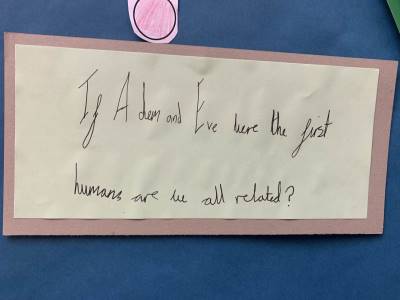 If Adem and Eve were the first
humans are we all related?